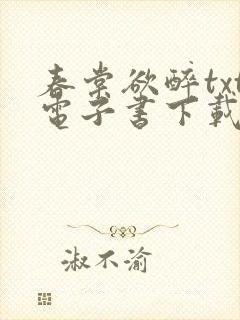 春棠欲醉txt
電子書下載
淑不渝